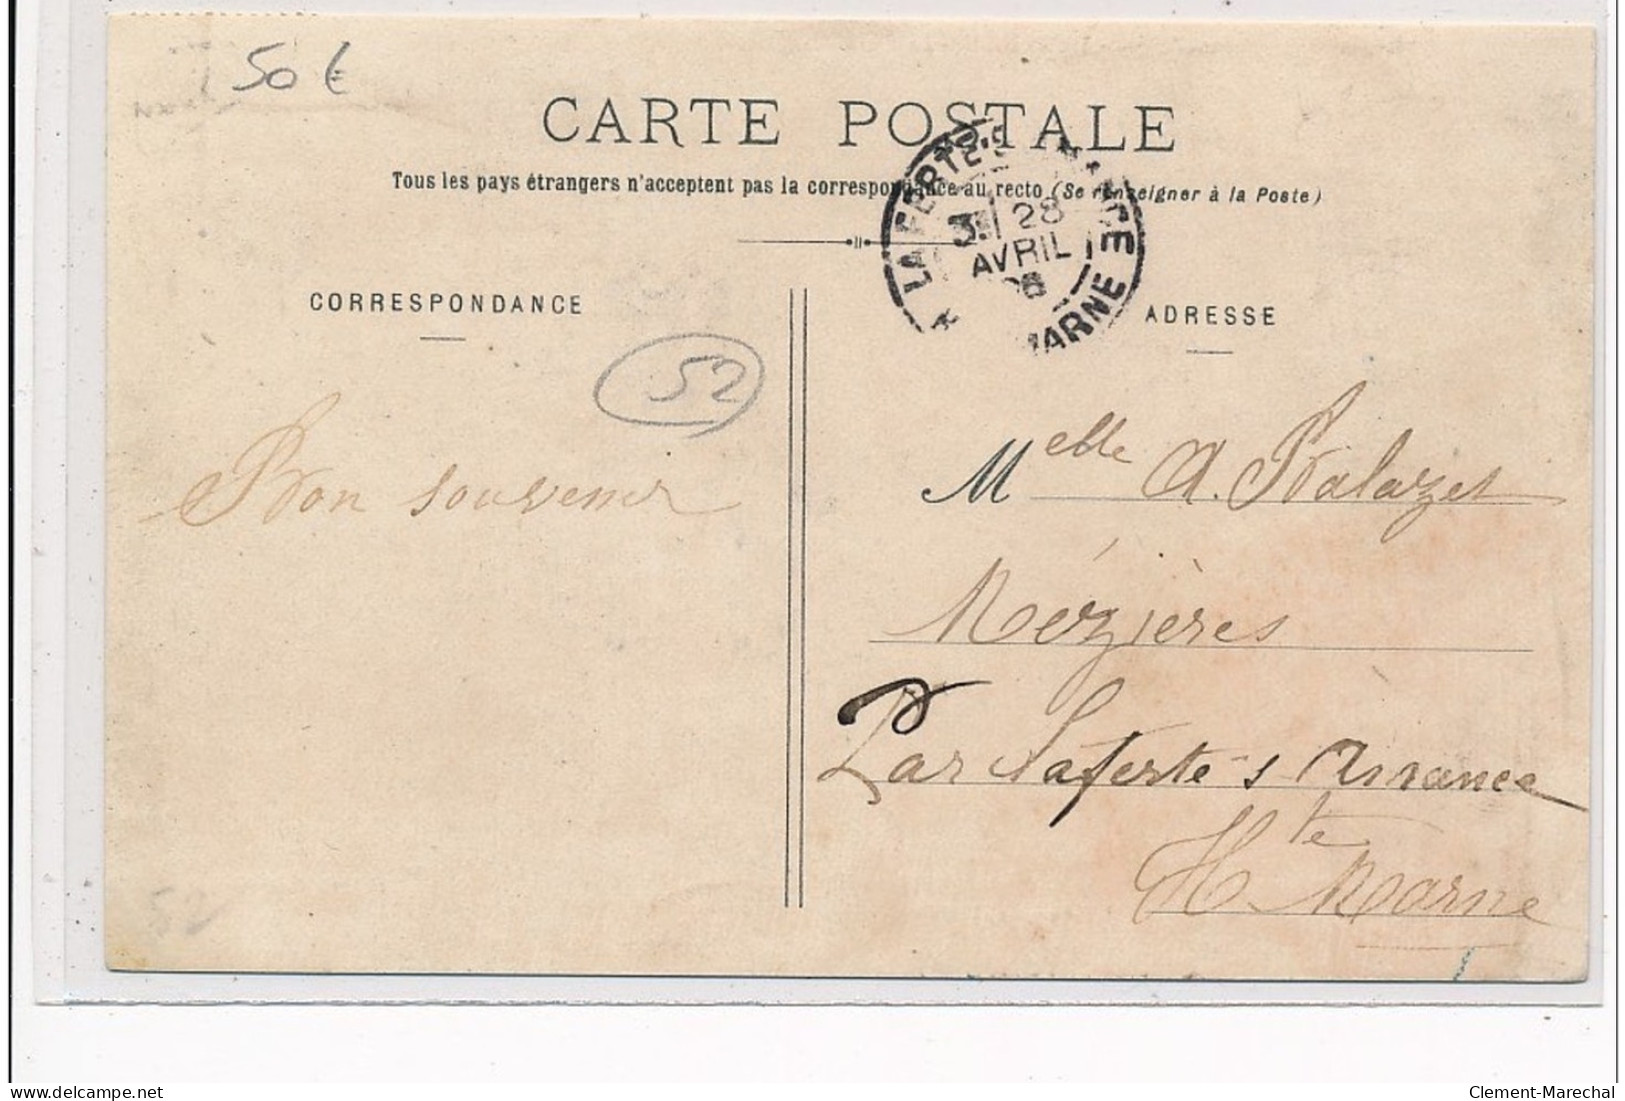 50 €
CARTE POSTALE
Tous les pays étrangers n'acceptent pas la correspondance au recto (Se renseigner à la Poste)
LA FERTE-S- AMANCE
28
AVRIL
08
MARNE
CORRESPONDANCE
ADRESSE
52
Bon souvenir
Melle A. Balazet
Mézières
Par Laferté s Amance
Hte Marne
52
delcampe.net
Clement-Marechal